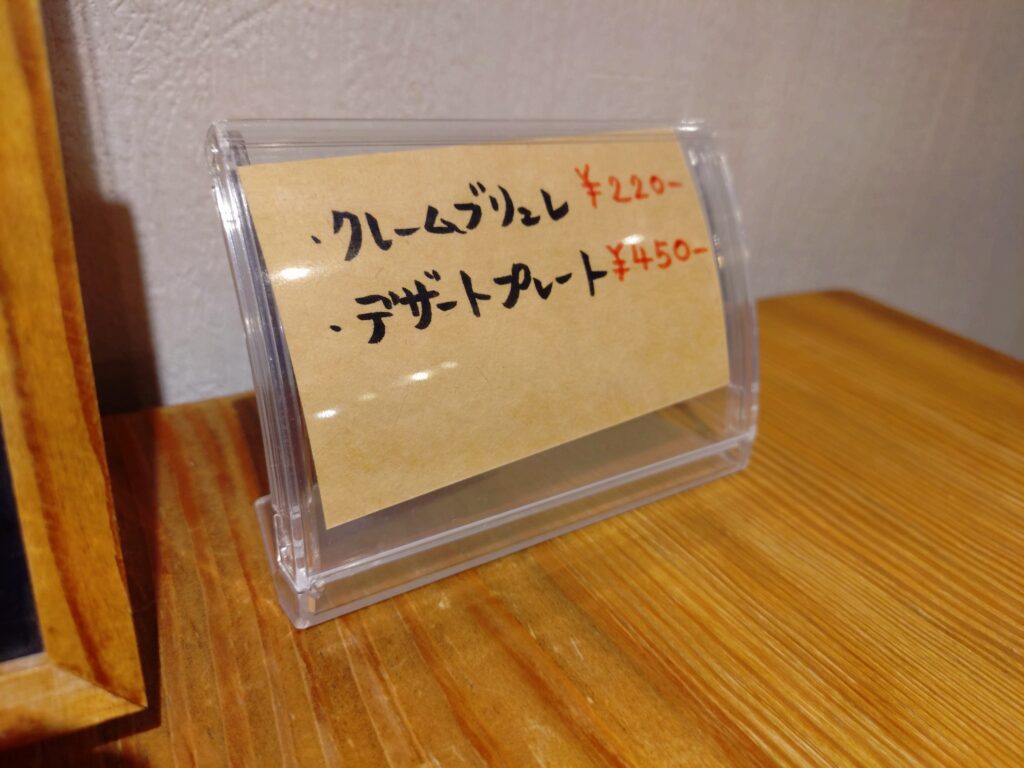 ・クレームブリュレ ¥220-
・デザートプレート ¥450-